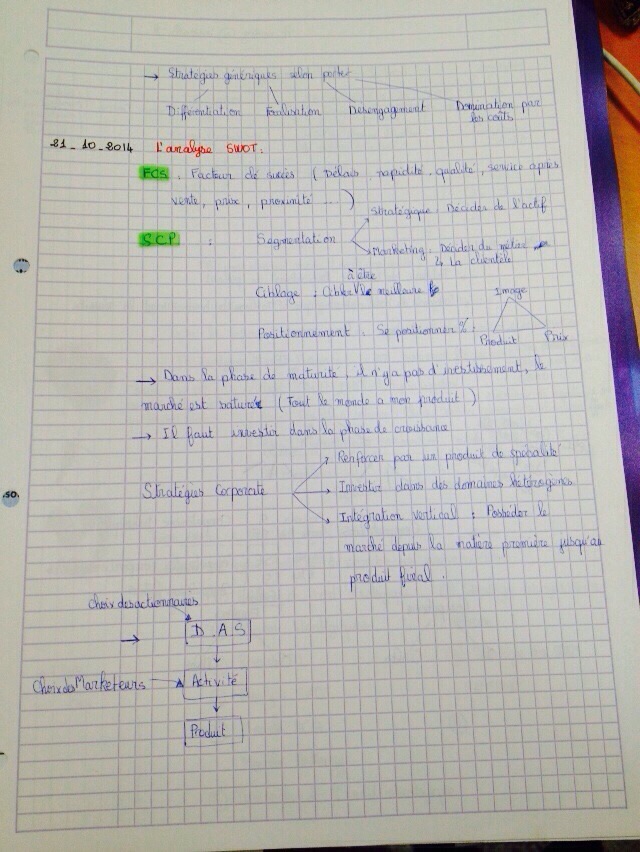 → Stratégies génériques selon porter
Différentiation Focalisation Désengagement Domination par
les coûts
21_10_2014 L'analyse SWOT.
FCS . Facteur de succès ( Délais rapidité, qualité, service après
vente, prix, proximité ... )
Stratégique : Décider de l'actif
SCP : Segmentation
Marketing : Décider du métier
↳ La clientèle
à être
Ciblage : Cibler le meilleure
Image
Positionnement : Se positionner % :
Produit Prix
→ Dans la phase de maturité, il n'y a pas d'investissement, le
marché est saturé ( Tout le monde a mon produit )
→ Il faut investir dans la phase de croissance
Renforcer par un produit de spécialité
Stratégies Corporate Investir dans des domaines hétérogènes
Intégration vertical : Posséder le
marché depuis la matière première jusqu'au
produit final .
choix des actionnaires
→ D.A.S
Choix des Marketeurs Activité
Produit